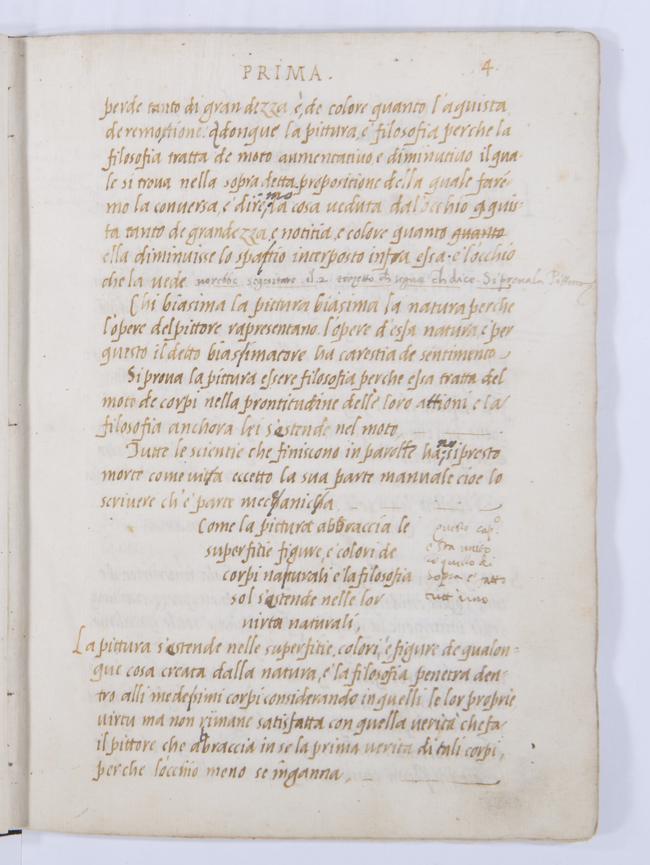 PRIMA.
4.
perde tanto di grandezza, è, de colore quanto l'aquista
de remotione. Adonque la pittura, e filosofia perche la
filosofia tratta de moto aumentatiuo e diminutiuo il qua-
le si troua nella sopra detta propositione della quale fare-
mo la conuersa, e diremo la cosa ueduta dal'occhio aquis-
ta tanto de grandezza, e notitia, e colore quanto quanto
ella diminuisse lo spattio interposto infra essa. e l'occhio
che la uede si proua la Pittura
Chi biasima la pittura biasima la natura perche
l'opere del pittore rapresentano. l'opere d'essa natura, e per
questo il detto biasimatore ha carestia de sentimento
Si proua la pittura essere filosofia perche essa tratta del
moto de corpi nella prontitudine delle loro attioni e la
filosofia anchora lei s'estende nel moto.
Tutte le scientie che finiscono in parolle hanno si presto
morte come uitta eccetto la sua parte manuale cioe lo
scriuere ch'è parte mechanicha
Come la pittura abbraccia le
superfitie figure, e colori de
corpi naturali e la filosofia
sol s'estende nelle lor
uirtu naturali,
questo cap.o
sopra e
La pittura s'estende nelle superfitie, colori, e figure de qualon-
que cosa creata dalla natura, e la filosofia penetra den-
tro alli medesimi corpi considerando in quelli le lor proprie
uirtu ma non rimane satisfatta con quella uerità che fa
il pittore che abraccia in se la prima uerità di tali corpi,
perche l'occhio meno se inganna,